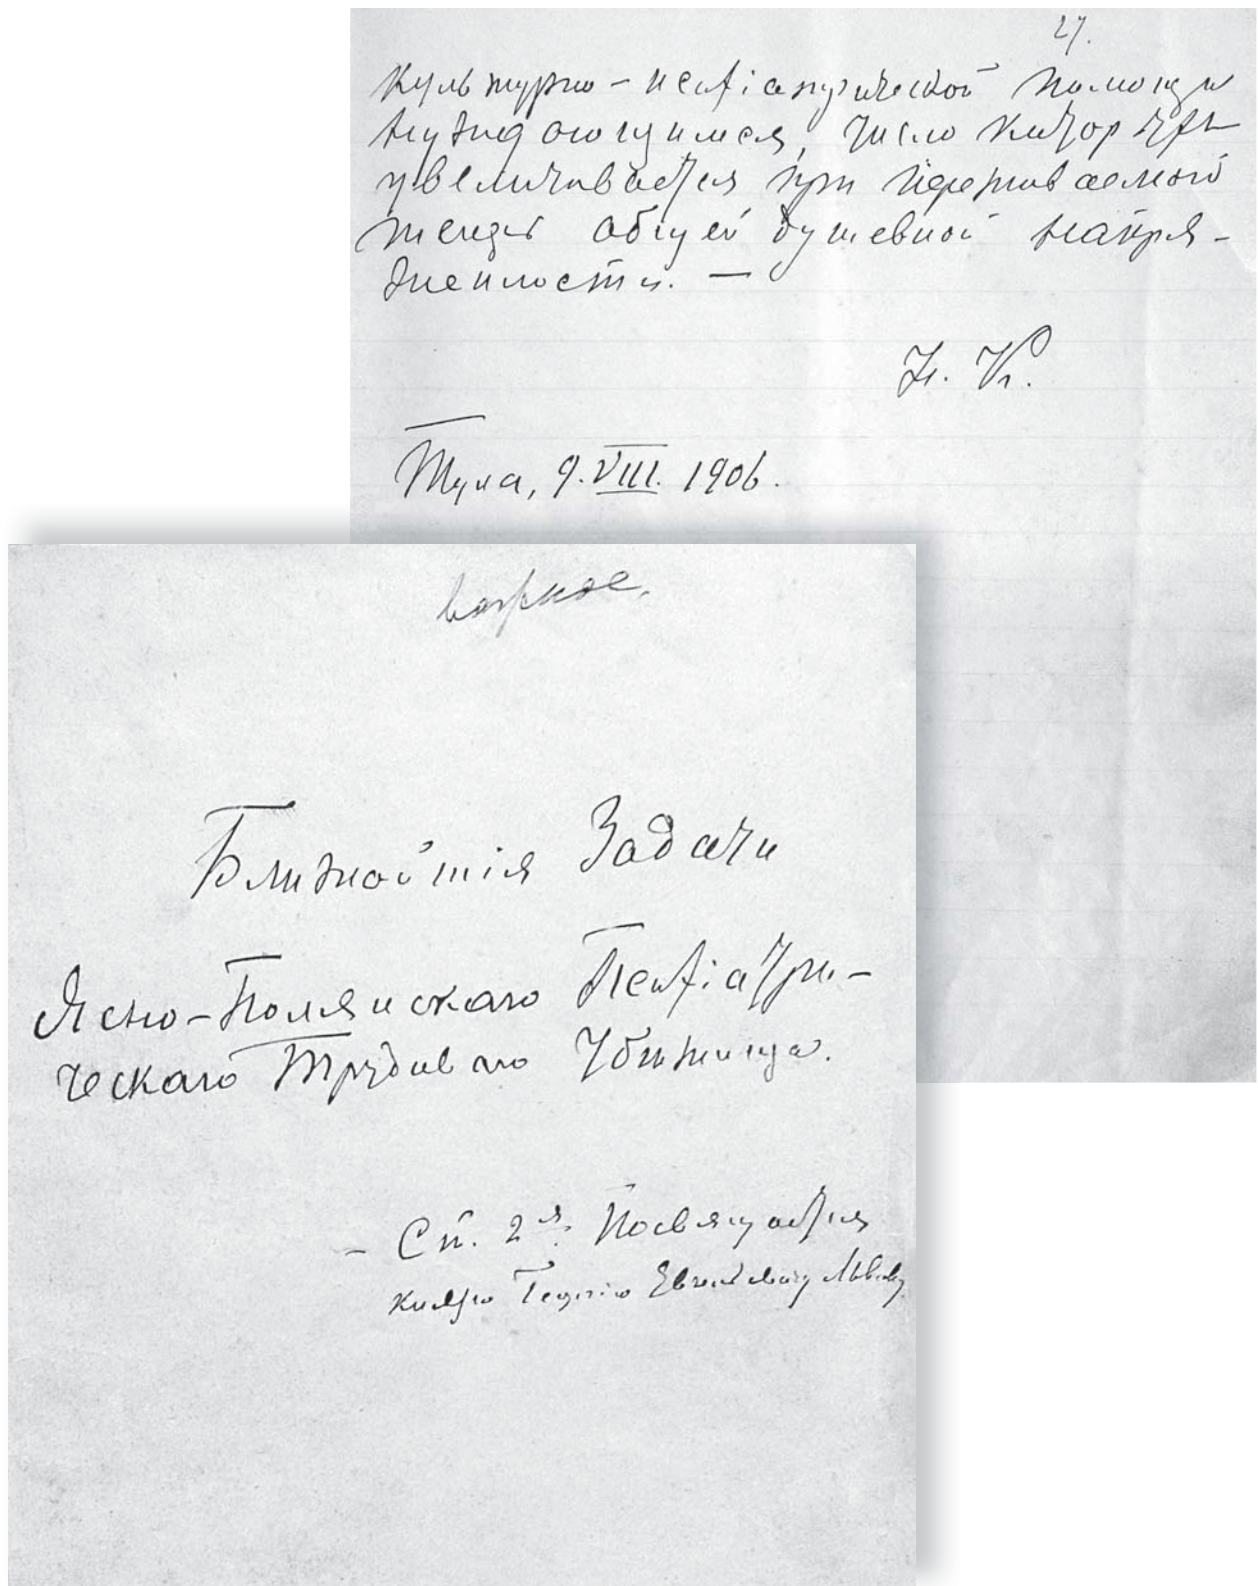 27.
культурно-псіхіатрической помощи
нуждающимся, число которыхъ
увеличивается при переживаемой
теперь общей душевной напря-
женности. —
Н. К.
Тула, 9. VIII. 1906.
важное.
Ближайшія Задачи
Ясно-Полянскаго Псіхіатри-
ческаго Трудового Убѣжища.
– Сп. 2я. Посвящается
князю Георгію Евгеніевичу Львову